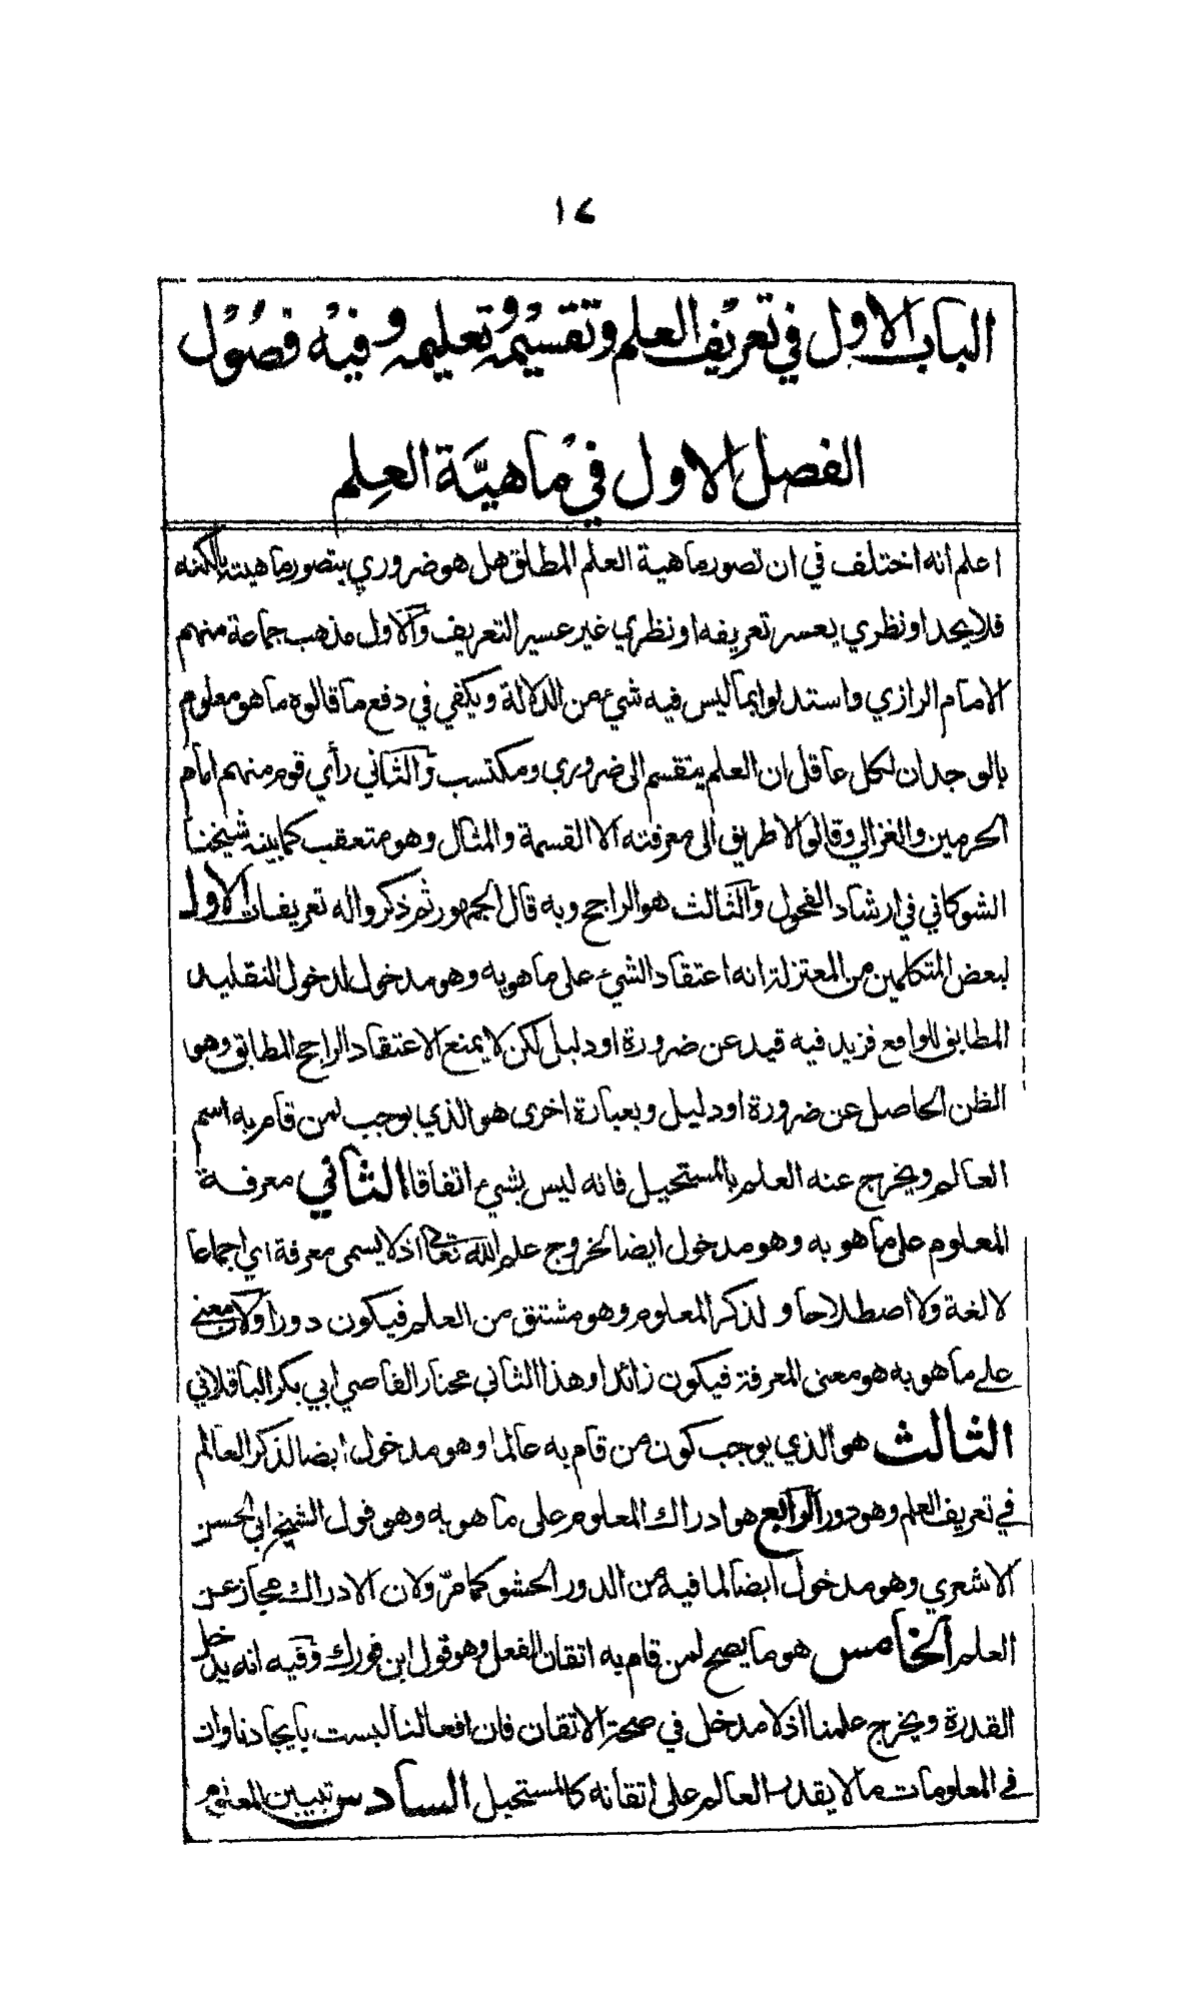 ١٤
الباب الاول في تعريف العلم وتقسيمه وتعليمه وفيه فصول
الفصل الاول في ماهيَّة العِلم
اعلم انه اختلف في ان تصور ماهية العلم المطلق هل هو ضروري يتصور ماهيته بالكنه
فلا يحد او نظري يعسر تعريفه او نظري غير عسير التعريف والاول مذهب جماعة منهم
الامام الرازي واستدلوا بما ليس فيه شيء من الدلالة ويكفي في دفع ما قالوه ما هو معلوم
بالوجدان لكل عاقل ان العلم ينقسم الى ضروري ومكتسب والثاني رأي قوم منهم امام
الحرمين والغزالي وقالوا لا طريق الى معرفته الا القسمة والمثال وهو متعقب كما بينه شيخنا
الشوكاني في ارشاد الفحول والثالث هو الراجح وبه قال الجمهور ثم ذكروا له تعريفات الاول
لبعض المتكلمين من المعتزلة انه اعتقاد الشيء على ما هو به وهو مدخول لدخول التقليد
المطابق للواقع فزيد فيه قيد عن ضرورة او دليل لكن لا يمنع الاعتقاد الراجح المطابق وهو
الظن الحاصل عن ضرورة او دليل وبعبارة اخرى هو الذي يوجب لمن قام به اسم
العالم ويخرج عنه العلم بالمستحيل فانه ليس بشيء اتفاقا الثاني معرفة
المعلوم على ما هو به وهو مدخول ايضا لخروج علم الله تعالى اذ لا يسمى معرفة اي اجماعا
لا لغة ولا اصطلاحا ولذكر المعلوم وهو مشتق من العلم فيكون دورا ولان معنى
على ما هو به هو معنى المعرفة فيكون زائدا وهذا الثاني مختار القاضي ابي بكر الباقلاني
الثالث هو الذي يوجب كون من قام به عالما وهو مدخول ايضا لذكر العالم
في تعريف العلم وهو دور الرابع هو ادراك المعلوم على ما هو به وهو قول الشيخ ابي الحسن
الاشعري وهو مدخول ايضا لما فيه من الدور الحشو كما مرّ ولان الادراك مجاز عن
العلم الخامس هو ما يصح لمن قام به اتقان الفعل وهو قول ابن فورك وفيه انه يدخل
القدرة ويخرج علمنا اذ لا مدخل في صحة الاتقان فان افعالنا ليست بايجادنا وان
في المعلومات ما لا يقدر العالم على اتقانه كالمستحيل السادس تبيين المعلوم